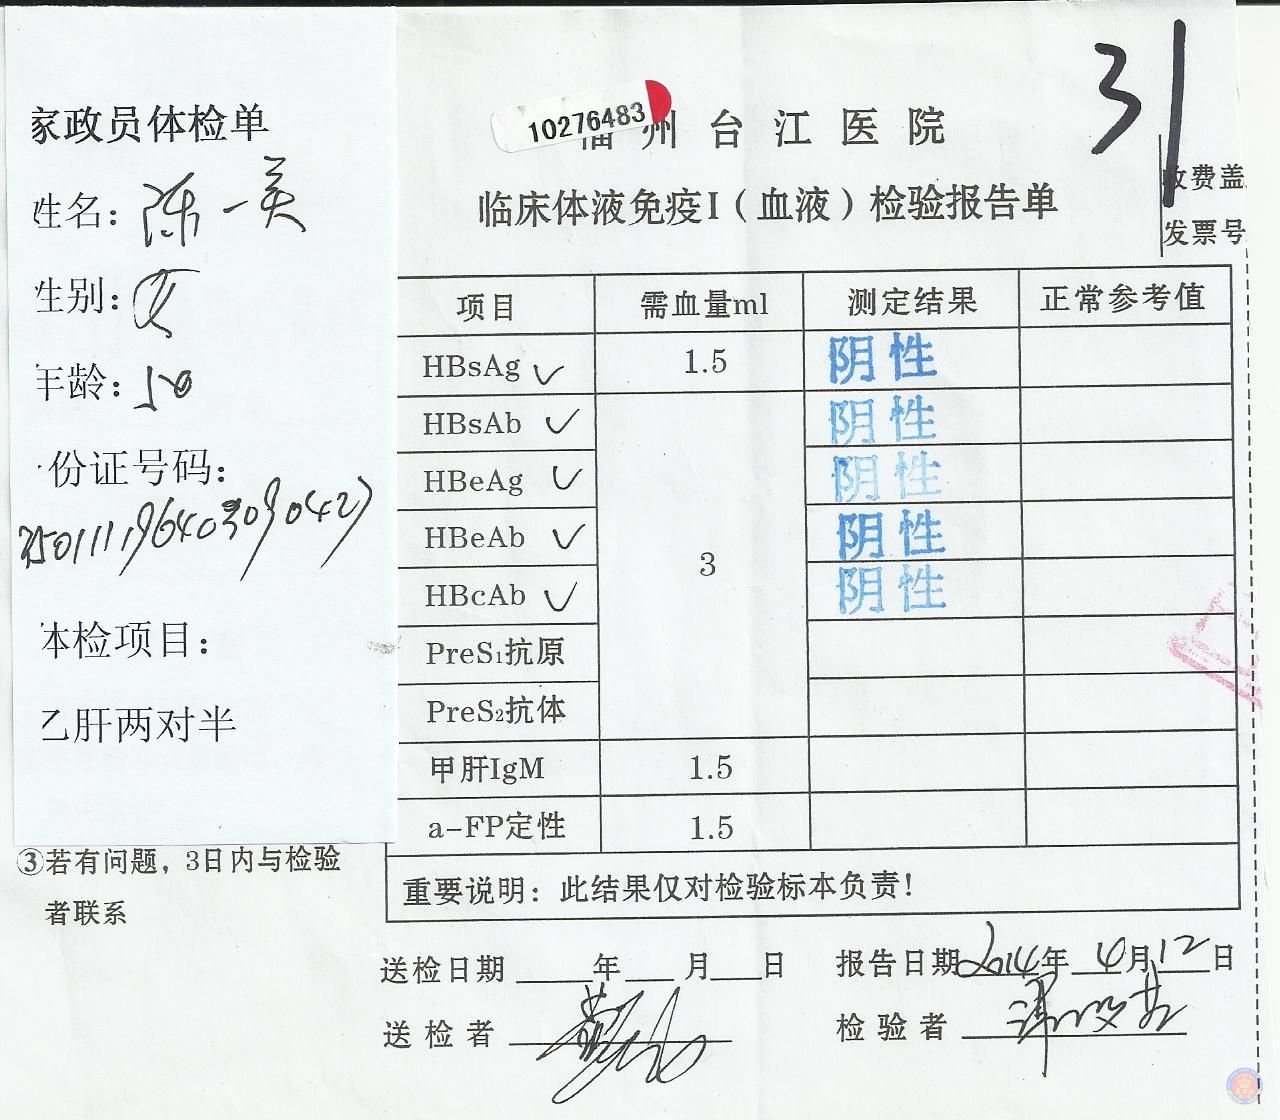 31
10276483
福州台江医院
临床体液免疫I（血液）检验报告单
收费盖
发票号
家政员体检单
姓名：陈一美
性别：女
年龄：50
份证号码：
体检项目：
乙肝两对半
③若有问题，3日内与检验
者联系
项目 需血量ml 测定结果 正常参考值
HBsAg ✓ 1.5 阴性
HBsAb ✓ 阴性
HBeAg ✓ 阴性
HBeAb ✓ 3 阴性
HBcAb ✓ 阴性
PreS₁抗原
PreS₂抗体
甲肝IgM 1.5
a-FP定性 1.5
重要说明：此结果仅对检验标本负责！
送检日期 年 月 日 报告日期 2014年 4月 12日
送检者 检验者